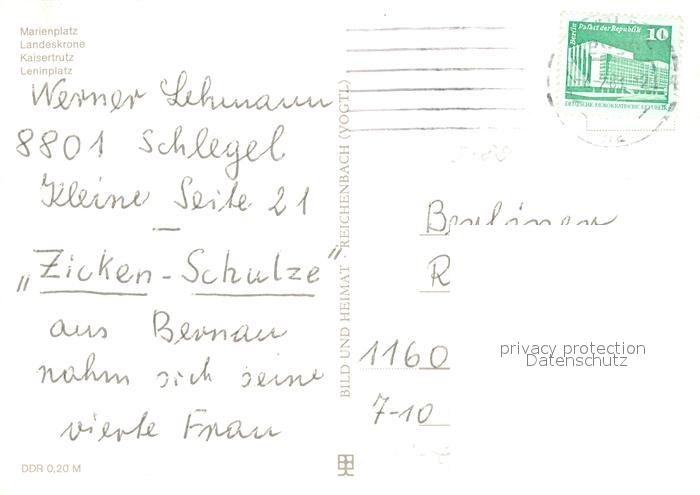 Marienplatz
Landeskrone
Kaisertrutz
Leninplatz
Werner Lehmann
8801 Schlegel
Kleine Seite 21
—
„Zicken-Schulze"
aus Bernau
nahm sich seine
vierte Frau
DDR 0,20 M
BILD UND HEIMAT · REICHENBACH (VOGTL)
Berlin Palast der Republik 10
DEUTSCHE DEMOKRATISCHE REPUBLIK
Berliner
R
1160
7-10
privacy protection
Datenschutz